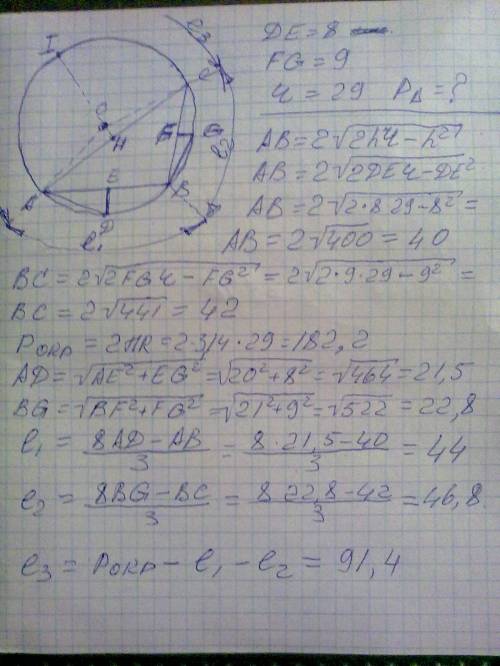 DE = 8
FG = 9
r = 29 P△ = ?
AB = 2√2hr − h²
AB = 2√2DEr − DE²
AB = 2√2·8·29 − 8² =
AB = 2√400 = 40
BC = 2√2FGr − FG² = 2√2·9·29 − 9² =
BC = 2√441 = 42
Pокр = 2ПR = 2·3,14·29 = 182,2
AD = √AE² + EG² = √20² + 8² = √464 = 21,5
BG = √BF² + FG² = √21² + 9² = √522 = 22,8
l₁ = 8AD − AB / 3 = 8·21,5 − 40 / 3 = 44
l₂ = 8BG − BC / 3 = 8 22,8 − 42 / 3 = 46,8
l₃ = Pокр − l₁ − l₂ = 91,4
I
l₃
C
O
H
F
G
l₂
A
E
B
D
l₁